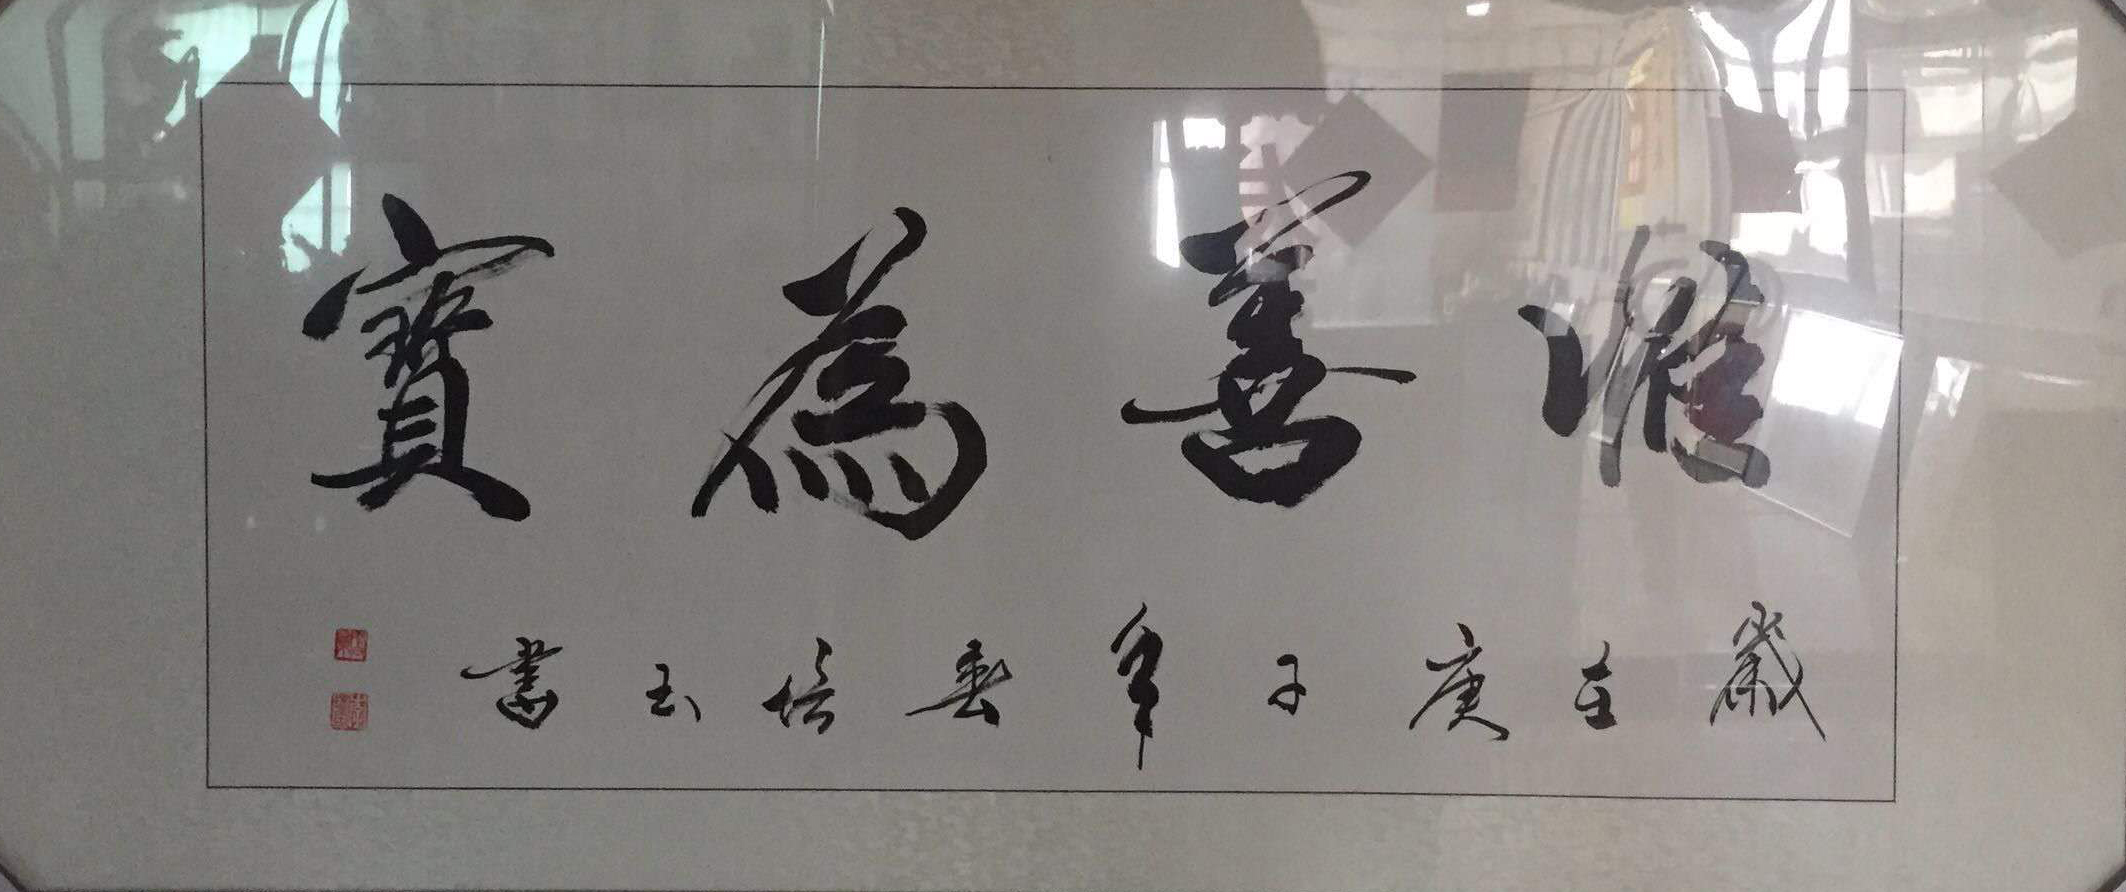 惟善為寶
歲在庚子年春培玉書